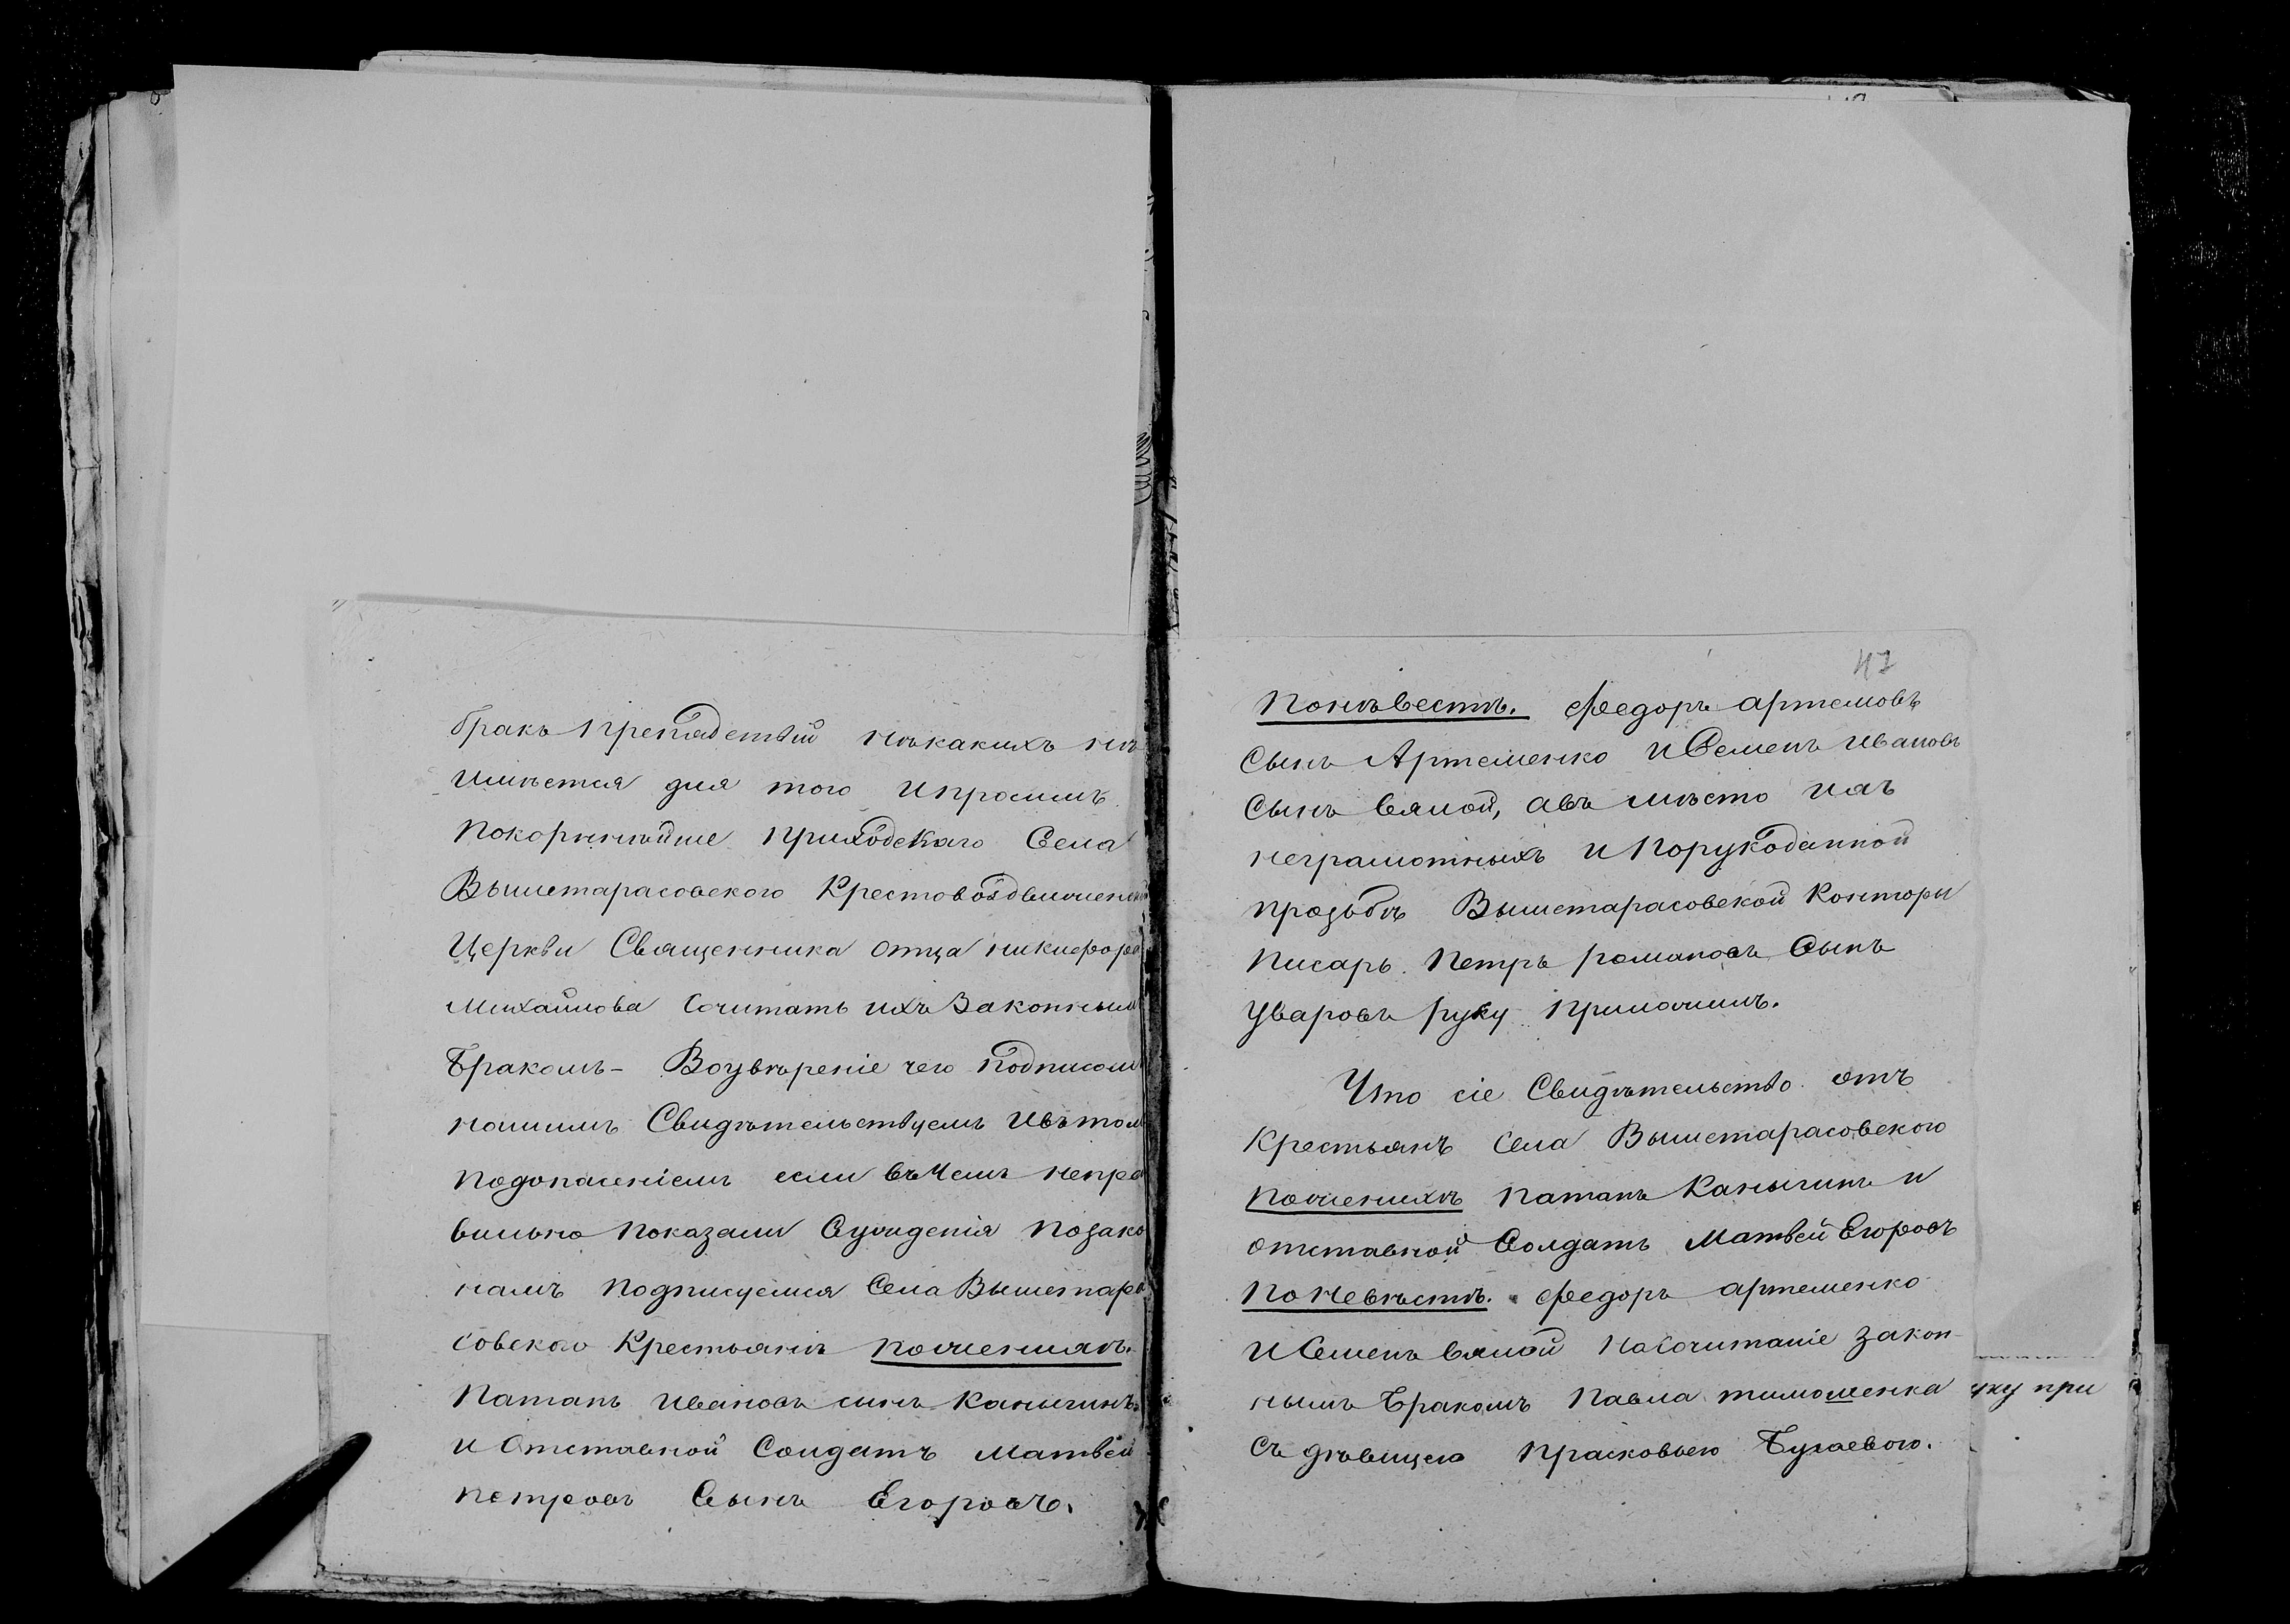 бракъ препядствій нѣкакихъ нѣ
имѣется для того ипросимъ
покорнѣйше приходскаго Села
Вышетарасовского Крестовоздвиженской
Церкви Священника отца никифора
Михайлова Сочитать ихъ Законнымъ
Бракомъ– Воувѣреніе чего подписом
нашимъ Свидѣтельствуемъ ивътом
подопасеніемъ если въчемъ непра
вильно показали Суждения позако
намъ подписуемся Села Вышетара
совского Крестьянъ пожениха.
Патапъ Ивановъ сынъ Канычинъ
и Отставной Солдатъ Матвей
петровъ Сынъ Егоровъ.
47
Понѣвестѣ. Федоръ артемовъ
Сынъ Артеменко иСеменъ ивановъ
Сынъ Вялой, авъ мѣсто ихъ
неграмотныхъ и порукоданной
прозьбѣ Вышетарасовской Конторы
писарь Петръ романовъ Сынъ
Уваровъ руку приложилъ.
Что сіе Свидѣтельство отъ
Крестьянъ Села Вышетарасовского
поженихѣ патапъ Канычинъ и
отставной Солдатъ Матвей Егоровъ
Поневѣстѣ. Федоръ артеменко
иСеменъ вялой наСочитаніе закон
нымъ Бракомъ Павла тимошенка
съ дѣвицею прасковьею Бугаевою.
уку при